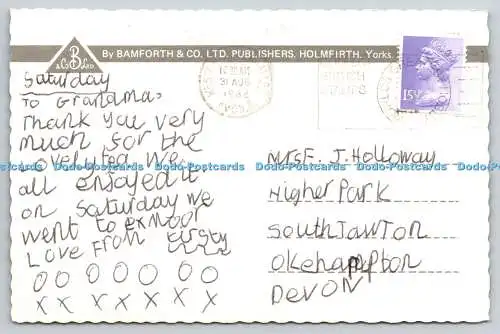 By BAMFORTH & CO. LTD. PUBLISHERS, HOLMFIRTH, Yorks.
B
& Co LTD
Saturday
To Grandma.
Thank you very
much for the
lovely tea we
all enjoyed it
on Saturday we
went to exmoor
Love from Kirsty
OOOOOO
XXXXXXX
31 AUG
15½P
Mrs E. J. Holloway
Higher Park
South Tawton
Okehampton
DEVON
Dodo-Postcards Dodo-Postcards Dodo-Postcards Dodo-Postcards Dodo-Postcards